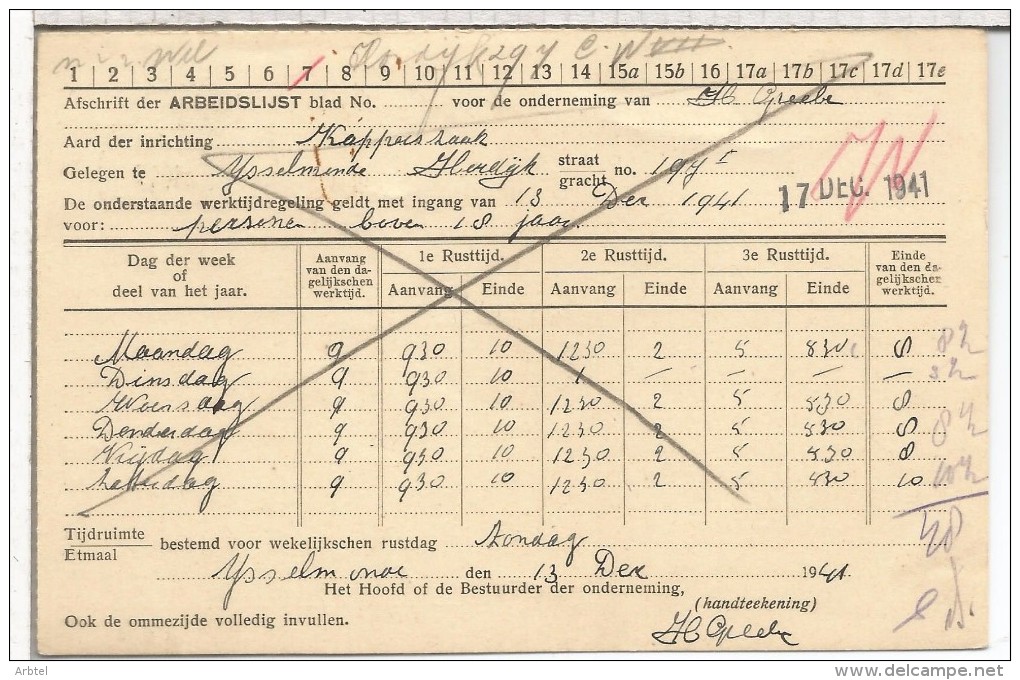 1 | 2 | 3 | 4 | 5 | 6 | 7 | 8 | 9 | 10 | 11 | 12 | 13 | 14 | 15a | 15b | 16 | 17a | 17b | 17c | 17d | 17e
Afschrift der ARBEIDSLIJST blad No. voor de onderneming van H Greebe
Aard der inrichting Kapperszaak
Gelegen te Ysselmonde Hordyk straat gracht no. 197 I
17 DEC. 1941
De onderstaande werktijdregeling geldt met ingang van 13 Dec 1941
voor: personen boven 18 jaar.
Dag der week of deel van het jaar. Aanvang van den dagelijkschen werktijd. 1e Rusttijd. 2e Rusttijd. 3e Rusttijd. Einde van den dagelijkschen werktijd.
Aanvang Einde Aanvang Einde Aanvang Einde
Maandag 9 930 10 1230 2 5 530 8 8½
Dinsdag 9 930 10 1 — — — —
Woensdag 9 930 10 1230 2 5 530 8
Donderdag 9 930 10 1230 2 5 530 8 8½
Vrijdag 9 930 10 1230 2 5 530 8
Zaterdag 9 930 10 1230 2 5 530 10 10½
Tijdruimte
Etmaal
bestemd voor wekelijkschen rustdag Zondag
Ysselmonde den 13 Dec 1941.
Het Hoofd of de Bestuurder der onderneming,
(handteekening)
Ook de ommezijde volledig invullen. H Greebe
Arbtel
www.delcampe.net